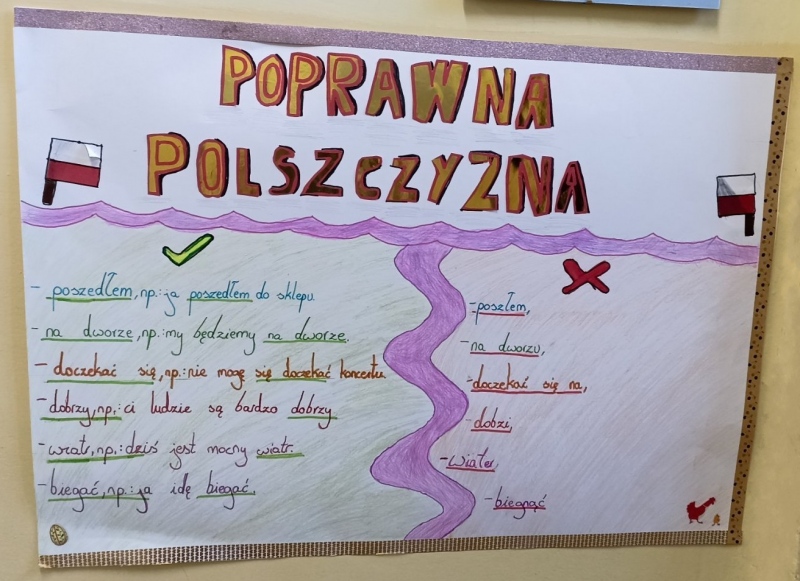 POPRAWNA
POLSZCZYZNA
- poszedłem, np.: ja poszedłem do sklepu.
- na dworze, np.: my będziemy na dworze.
- doczekać się, np.: nie mogę się doczekać koncertu.
- dobrzy, np.: ci ludzie są bardzo dobrzy.
- wiatr, np.: dziś jest mocny wiatr.
- biegać, np.: ja idę biegać.
- poszłem,
- na dworzu,
- doczekać się na,
- dobzi,
- wiater,
- biegnąć